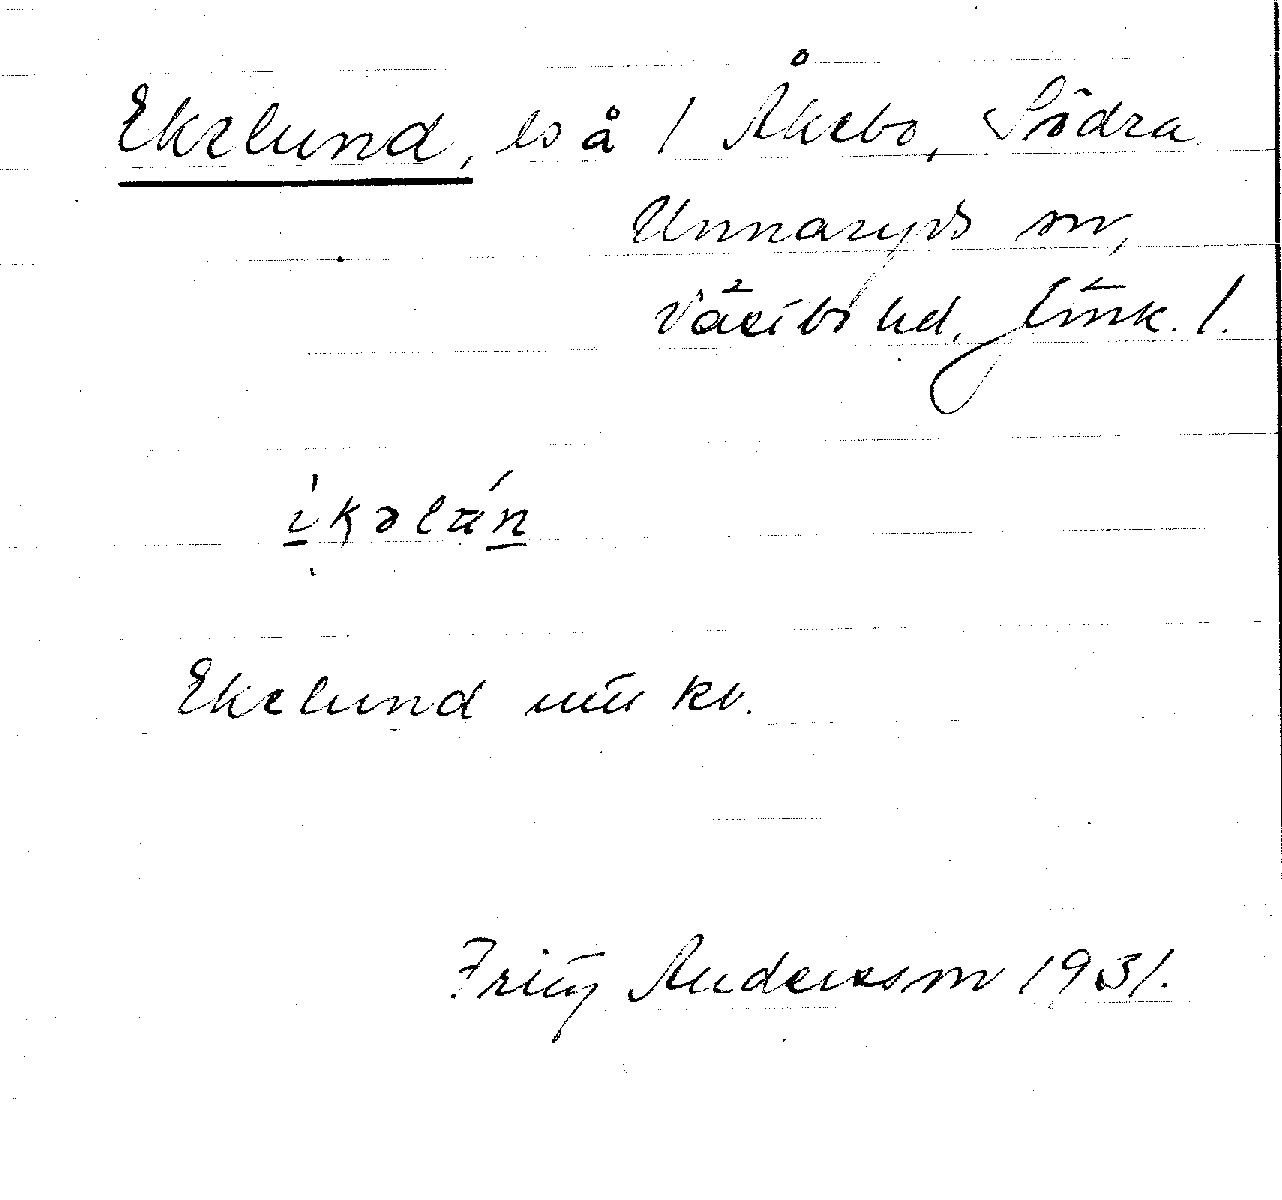 Ekelund, ls å 1 Åkebo, Södra
Unnaryds sn,
Västbo hd. Jönk. l.
Ekelund kv.
Fritz Andersson 1931.